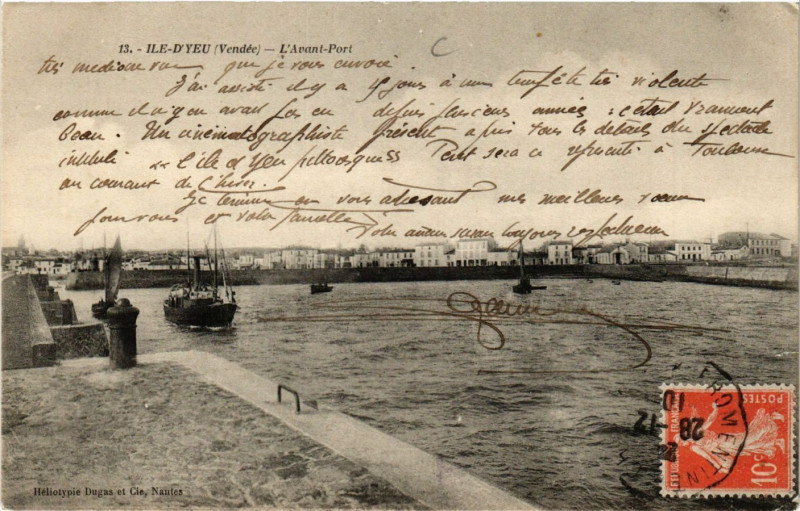 13. - ILE-D'YEU (Vendée) — L'Avant-Port
C
très médiocre vue que je vous envoie.
J'ai assisté il y a jours à une tempête très violente
comme il n'y en avait pas eu depuis plusieurs années : c'était vraiment
beau. Un cinématographiste présent a pris tous les détails du spectacle
intitulé "L'île d'Yeu pittoresque" Peut sera ce représenté à Toulouse
au courant de l'hiver.
Je termine en vous adressant mes meilleurs vœux
pour vous et votre famille
Votre toujours respectueux
POSTES
10c
FROMENTIN
28-12
10
Héliotypie Dugas et Cie, Nantes